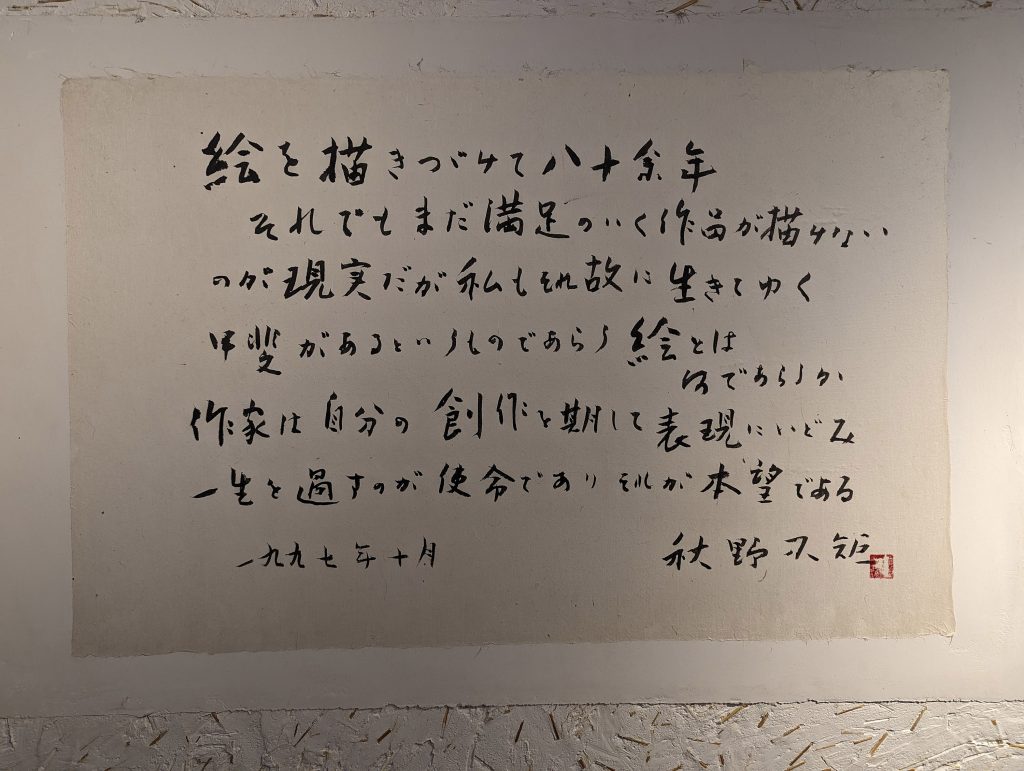 絵を描きつづけて八十余年
それでもまだ満足のいく作品が描けない
のが現実だが私もそれ故に生きてゆく
甲斐があるというものであらう絵とは
何であらうか
作家は自分の創作を期して表現にいどみ
一生を過すのが使命でありそれが本望である
一九九七年十月
秋野不矩